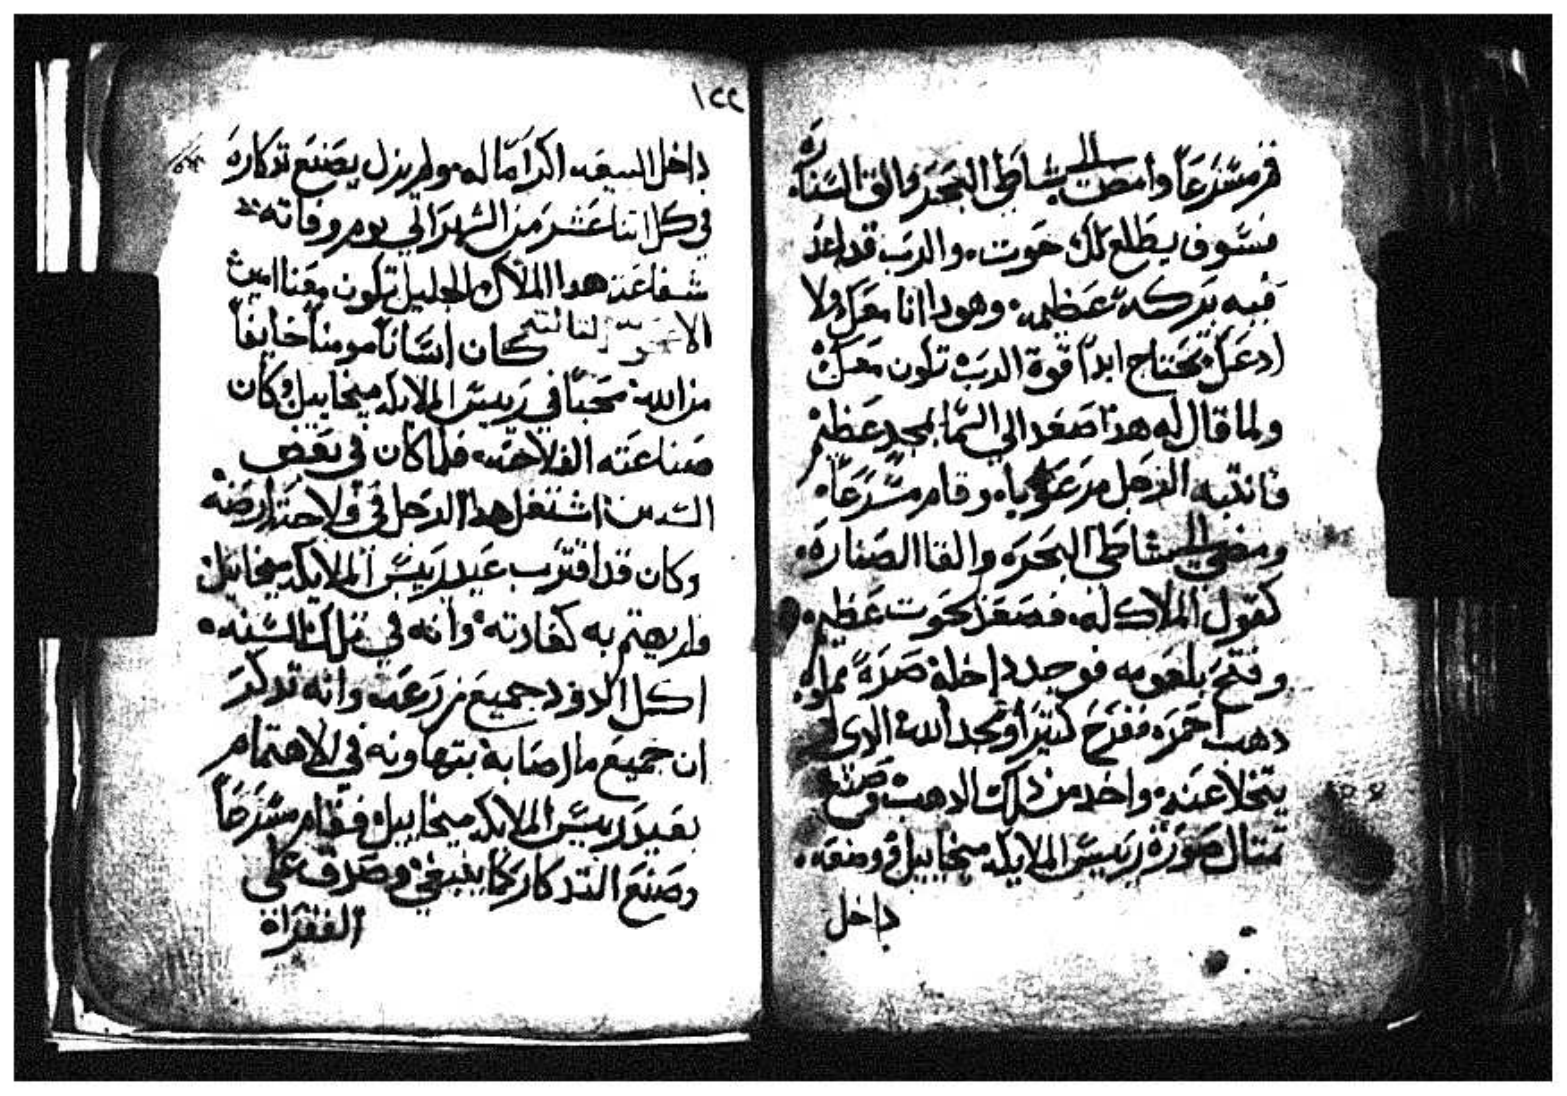 فقم مسرعاً وأمض الى شاطي البحر والق السنارة
فسوف يطلع لك حوت، والرب قد اعد
فيه بركه عظيمه وهودا انا معك ولا
ادعك تحتاج ابداً قوة الرب تكون معك
ولما قال له هذا صعد الى السما بمجد عظيم
فانتبه الرجل مرعوباه وقام مسرعاً
ومضي الى شاطي البحره والقا الصناره
كقول الملاك له، فصعد حوت عظيم
وفتح بلعومه فوجد داخله صرةً مملوه
دهب احمره ففرح كتيراً ومجد الله الدى
يتخلا عنه، واخد من ذلك الدهب وصنع
تمتال صورة رييس الملايكه ميخاييل ووضعه
داخل
١٢٢
داخل البيعه اكراماً له، ولم يزل يصنع تدكاره
في كل اتنا عشر من الشهر الي يوم وفاته
شفاعة هدا الملاك الجليل تكون معنا امين
كان انساناً مومناً خايفاً
من الله، محباً في رييس الملايكه ميخاييل وكان
صناعته الفلاحه، فلما كان في بعض
السنين اشتغل هدا الرجل في فلاحة ارضه
وكان قد اقترب عيد رييس الملايكه ميخاييل
ولم يهتم به كعادته، وانه في تلك السنه
اكل الدود جميع زرعه وانه تدكر
ان جميع ما اصابه بتهاونه في الاهتمام
بعيد رييس الملايكه ميخاييل فقام مسرعاً
وصنع التدكار كما ينبغي وصدق على
الفقراء